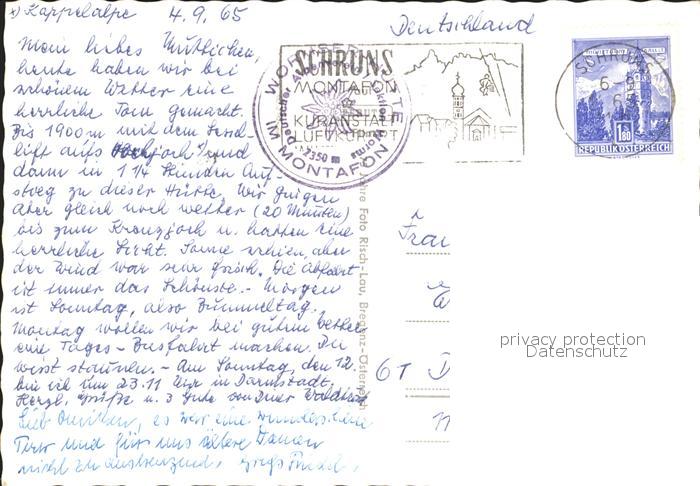 x) Kappelalpe 4.9.65
Deutschland
Mein liebes Muttchen,
heute haben wir bei
schönem Wetter eine
herrliche Tour gemacht.
Bis 1900 m mit dem Sessel-
lift aufs Hochjoch x) und
dann in 1 1/4 Stunden Auf-
stieg zu dieser Hütte. Wir gingen
aber gleich noch weiter (20 Minuten)
bis zum Kreuzjoch u. hatten eine
herrliche Sicht. Sonne schien, aber
der Wind war sehr frisch. Die Abfahrt
ist immer das Schönste. - Morgen
ist Sonntag, also Bummeltag.
Montag wollen wir bei gutem Wetter
eine Tages-Busfahrt machen. Du
wirst staunen. - Am Sonntag, den 12.
bin ich um 23.11 Uhr in Darmstadt.
Herzl. Grüße u. 3 Gute von Deiner
Lieb, es war eine wunderschöne
Tour und für uns ältere Damen
nicht zu anstrengend,
SCHRUNS
MONTAFON
KURANSTALT
LUFTKURORT
WORMSER HÜTTE
IM MONTAFON
Deutscher Alpenverein
Worms
2350 m
SCHRUNS
1.80
REPUBLIK ÖSTERREICH
Foto Risch-Lau, Bregenz-Österreich
Frau
6 1 D
privacy protection
Datenschutz